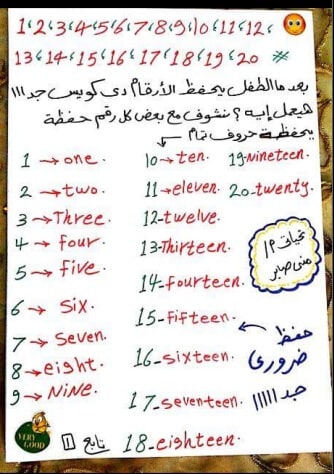 1 ، 2 ، 3 ، 4 ، 5 ، 6 ، 7 ، 8 ، 9 ، 10 ، 11 ، 12 ،
13 ، 14 ، 15 ، 16 ، 17 ، 18 ، 19 ، 20 #
بعد ما الطفل يحفظ الأرقام دى كويس جداااا
هيعمل إيه ؟ نشوف مع بعض كل رقم حفظة
يحفظة حروف تمام
1 → one.
2 → two.
3 → Three.
4 → four.
5 → five.
6 → Six.
7 → Seven.
8 → eight.
9 → NiNe.
10 → ten.
11 → eleven.
12 - twelve.
13 - Thirteen.
14 - fourteen.
15 - Fifteen.
16 - sixteen.
17 - seventeen.
18 - eighteen.
19 - Nineteen.
20 - twenty.
تحياتى م/
منى صابر
حفظ
ضرورى
جدااااا
VERY
GOOD
تابع 1